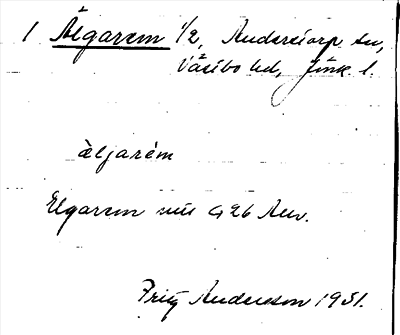 1 Älgarem 1/2, Anderstorp sn,
Västbo hd, Jönk. l.
äljarèm
Elgarem nu G 26 Anv.
Fritz Anderson 1931.